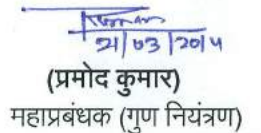 21/03/2014
(प्रमोद कुमार)
महाप्रबंधक (गुण नियंत्रण)